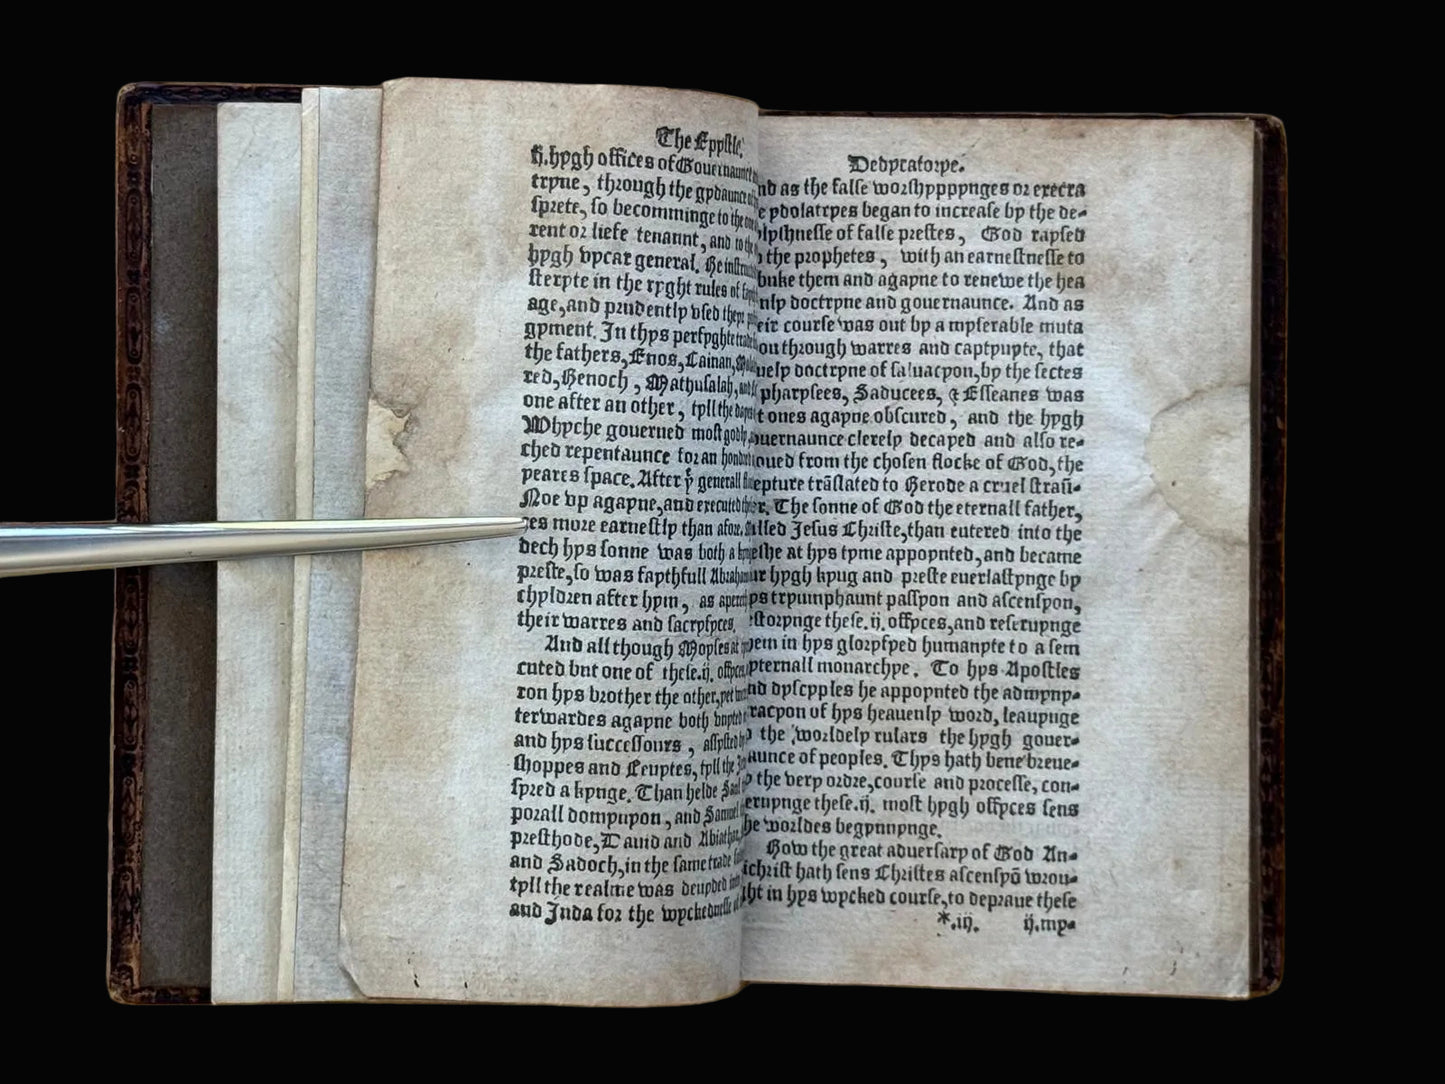 The Epystle.
ij. hygh offices of Gouernaunce
tryne, through the gydaunce of
sprete, so becomminge to the one
rent or liefe tenaunt, and to the
hygh vycar general. He instruc
steryte in the ryght rules of
age, and prudently vsed theyr
gyment. In thys perfyghte trade
the fathers, Enos, Cainan,
red, Henoch, Mathusalah, and
one after an other, tyll the dayes
Whyche gouerned most godly,
ched repentaunce for an hondred
yeares space. After yͤ generall
Noe vp agayne, and executed
ces more earnestly than afore.
dech hys sonne was both a
preste, so was faythfull Abraham
chyldren after hym, as apereth
their warres and sacryfyces.
And all though Moyses at
cuted but one of these. ij. offyces,
ron hys brother the other, yet
terwardes agayne both vnyted
and hys successours, assysted by
shoppes and Leuytes, tyll the
syred a kynge. Than helde Saul
porall domynyon, and Samuel
presthode, Dauid and Abiathar,
and Sadoch, in the same trade
tyll the realme was deuyded into
and Juda for the wyckednesse of
Dedycatorye.
nd as the false worshyppynges or execra
e ydolatryes began to increase by the de-
lyshnesse of false prestes, God raysed
the prophetes, with an earnestnesse to
buke them and agayne to renewe the hea
nly doctryne and gouernaunce. And as
eir course was out by a myserable muta
on through warres and captyuyte, that
uely doctryne of saluacyon, by the sectes
pharysees, Saducees, & Esseanes was
t ones agayne obscured, and the hygh
ouernaunce clerely decayed and also re-
oued from the chosen flocke of God, the
epture trāslated to Herode a cruel straū-
r. The sonne of God the eternall father,
lled Jesus Christe, than entered into the
eshe at hys tyme appoynted, and became
ur hygh kyng and preste euerlastynge by
ys tryumphaunt passyon and ascensyon,
estorynge these. ij. offyces, and reseruynge
hem in hys gloryfyed humanyte to a sem
yternall monarchye. To hys Apostles
nd dyscyples he appoynted the admyny-
racyon of hys heauenly word, leauynge
the worldely rulars the hygh gouer-
aunce of peoples. Thys hath bene breue-
the very ordre, course and processe, con-
ernynge these. ij. most hygh offyces sens
he worldes begynnynge.
How the great aduersary of God An-
ichrist hath sens Christes ascensyō wrou-
ght in hys wycked course, to depraue these
*.iij. ij. my-